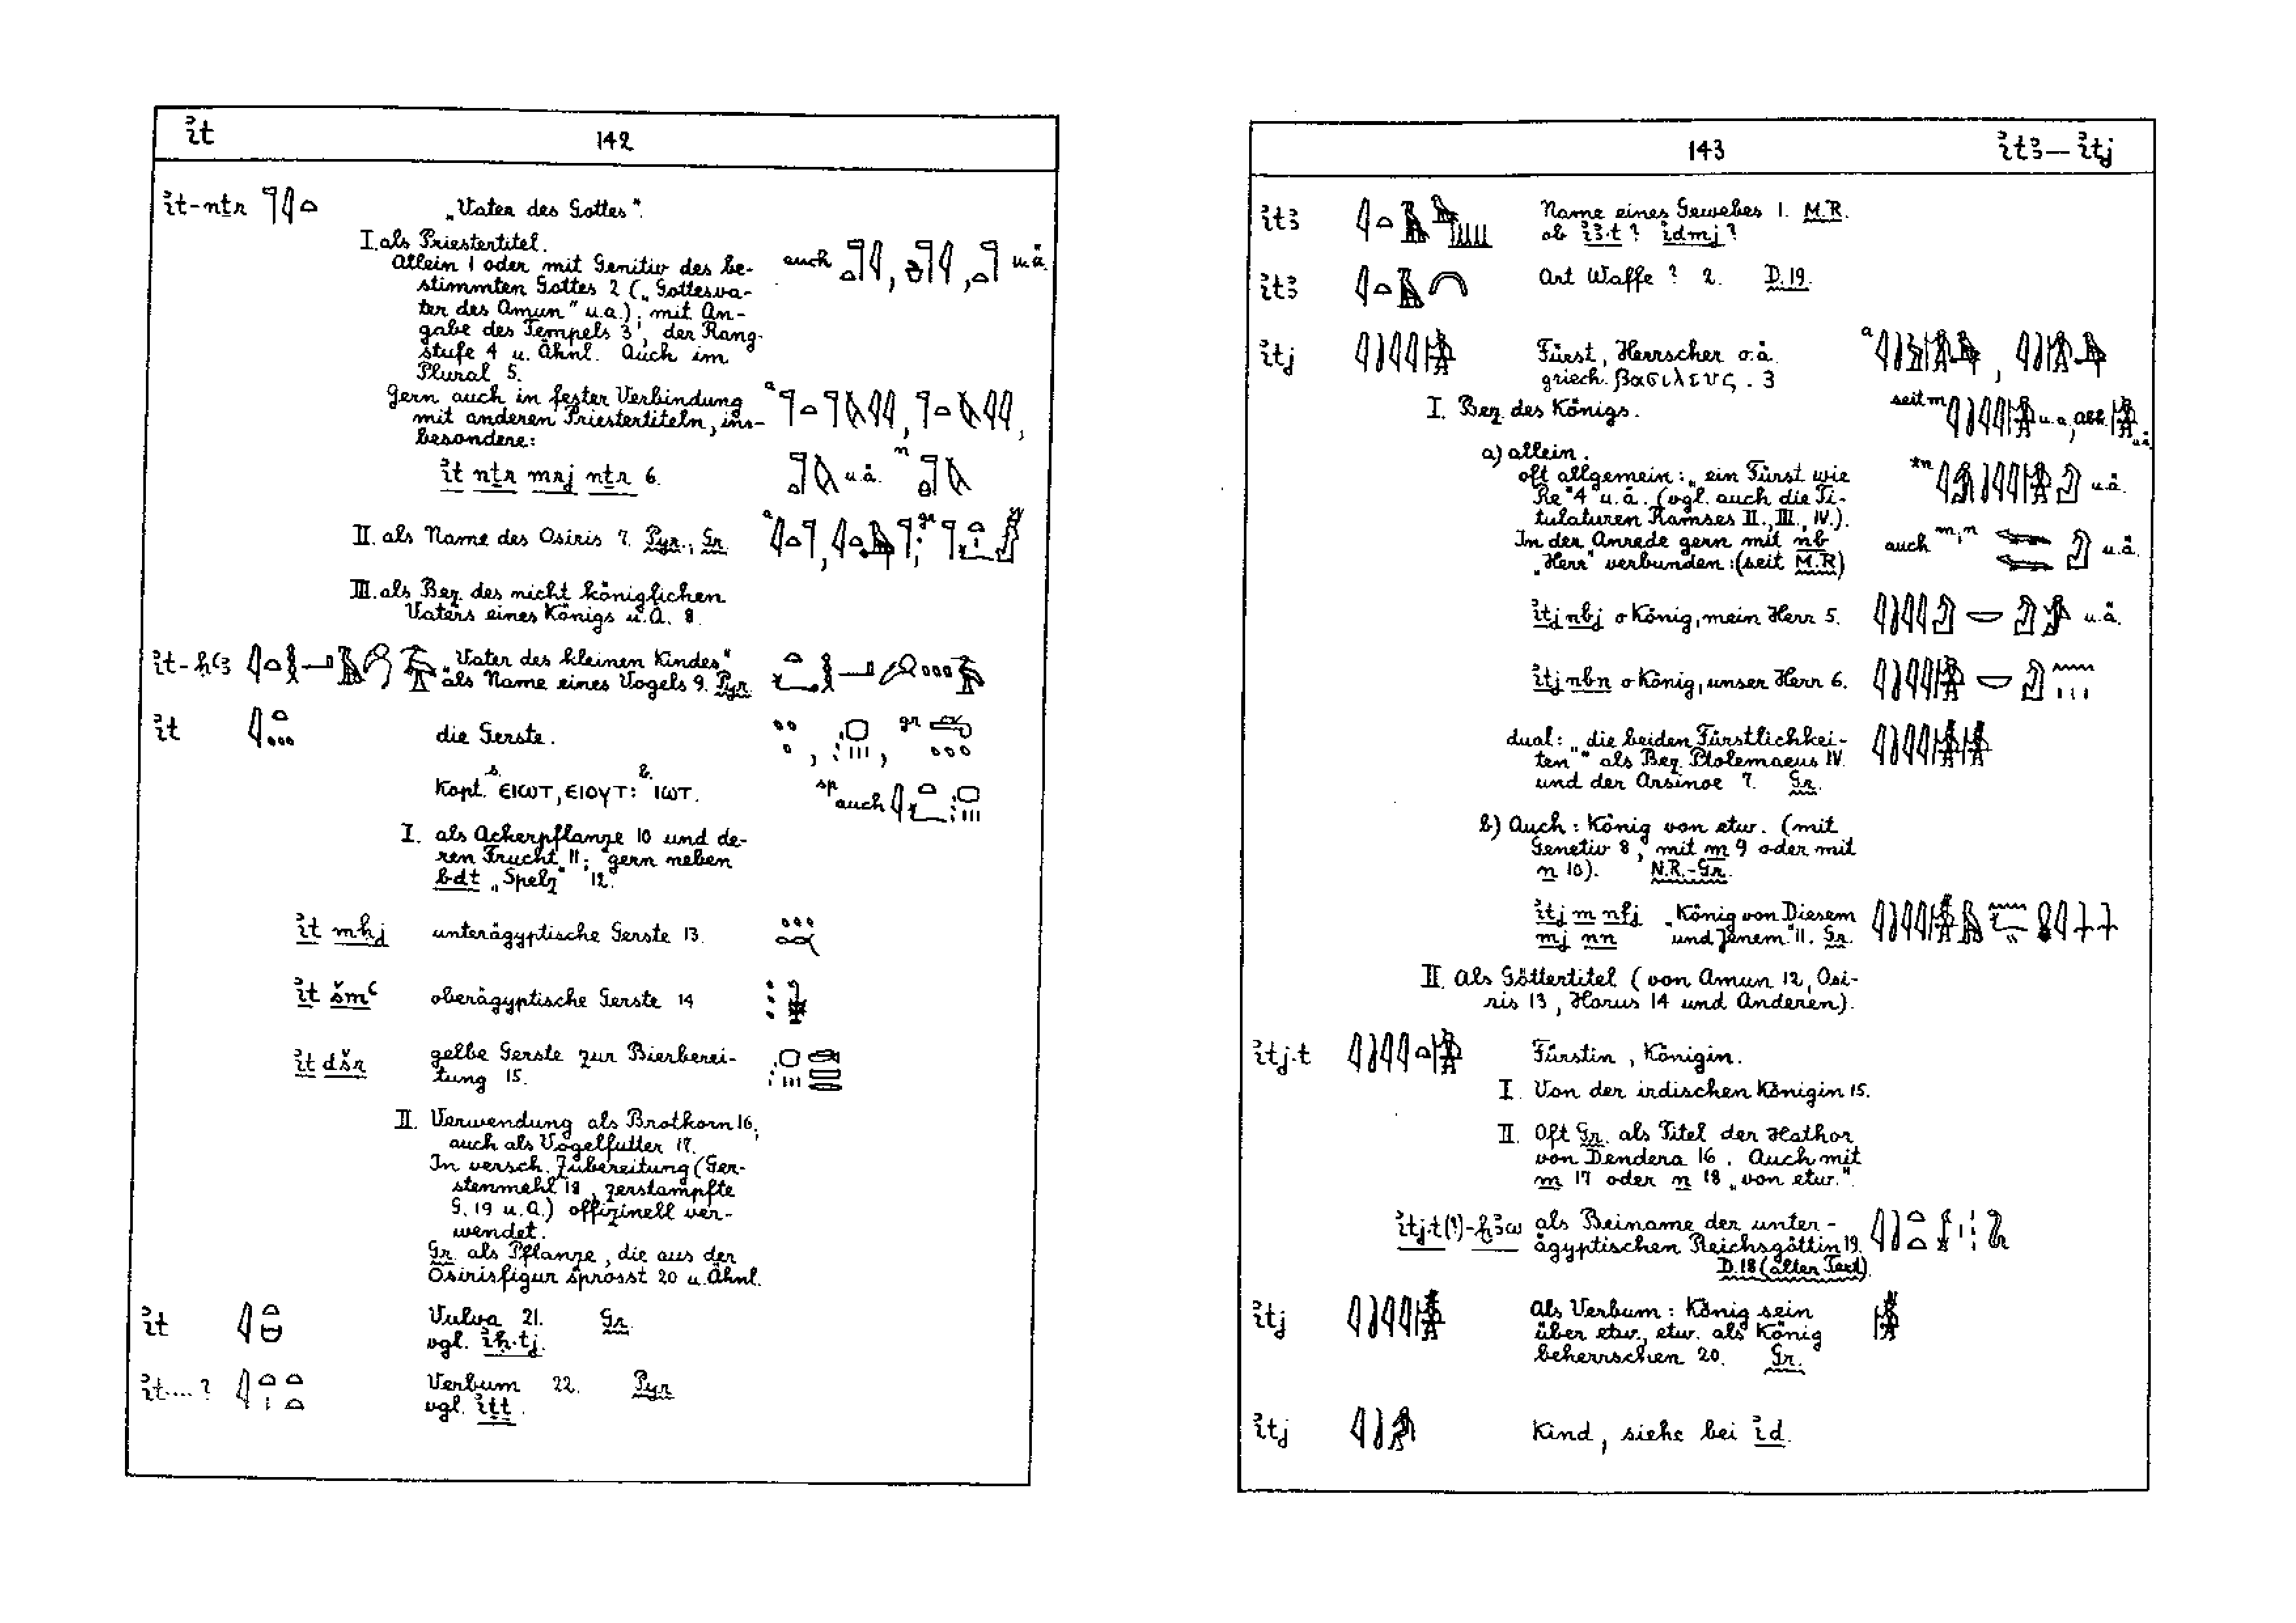 ı͗t
142
ı͗t-nṯr
„Vater des Gottes".
I. als Priestertitel.
Allein 1 oder mit Genitiv des be-
auch
u.ä.
stimmten Gottes 2 („Gottesva-
ter des Amun" u.a.); mit An-
gabe des Tempels 3; der Rang-
stufe 4 u. Ähnl. Auch im
Plural 5.
Gern auch in fester Verbindung
mit anderen Priestertiteln, ins-
besondere:
ı͗t nṯr mrj nṯr 6.
u.ä.
II. als Name des Osiris 7. Pyr., Gr.
III. als Bez. des nicht königlichen
Vaters eines Königs u.Ä. 8.
ı͗t-ḥꜥꜣ
„Vater des kleinen Kindes"
als Name eines Vogels 9. Pyr.
ı͗t
die Gerste.
gr
Kopt. s. ⲉⲓⲱⲧ, ⲉⲓⲟⲩⲧ: b. ⲓⲱⲧ.
sp auch
I. als Ackerpflanze 10 und de-
ren Frucht 11; gern neben
bdt „Spelz" 12.
ı͗t mḥj
unterägyptische Gerste 13.
ı͗t šmꜥ
oberägyptische Gerste 14
ı͗t dšr
gelbe Gerste zur Bierberei-
tung 15.
II. Verwendung als Brotkorn 16;
auch als Vogelfutter 17.
In versch. Zubereitung (Ger-
stenmehl 18, zerstampfte
G. 19 u.a.) offizinell ver-
wendet.
Gr. als Pflanze, die aus der
Osirisfigur sprosst 20 u. Ähnl.
ı͗t
Vulva 21. Gr.
vgl. ı͗ḥ·tj.
ı͗t....?
Verbum 22. Pyr
vgl. ı͗ṯṯ.
143
ı͗tꜣ—ı͗tj
ı͗tꜣ
Name eines Gewebes 1. M.R.
ob ı͗ꜣ·t? ı͗dmj?
ı͗tꜣ
Art Waffe? 2. D.19.
ı͗tj
Fürst, Herrscher o.ä.
griech. βασιλευς. 3
I. Bez. des Königs.
seit m
u.a., Abk.
u.ä.
a) allein.
oft allgemein: „ein Fürst wie
Re" 4 u.ä. (vgl. auch die Ti-
u.ä.
tulaturen Ramses II., III., IV.).
In der Anrede gern mit nb
auch m,n
u.ä.
„Herr" verbunden: (seit M.R)
ı͗tj nbj o König, mein Herr 5.
u.ä.
ı͗tj nbn o König, unser Herr 6.
dual: „die beiden Fürstlichkei-
ten" als Bez. Ptolemaeus IV.
und der Arsinoe 7. Gr.
b) Auch: König von etw. (mit
Genetiv 8, mit m 9 oder mit
n 10). N.R.-Gr.
ı͗tj m nfj „König von Diesem
mj nn und Jenem" 11. Gr.
II. Als Göttertitel (von Amun 12, Osi-
ris 13, Horus 14 und Anderen).
ı͗tj·t
Fürstin, Königin.
I. Von der irdischen Königin 15.
II. Oft Gr. als Titel der Hathor
von Dendera 16. Auch mit
m 17 oder n 18 „von etw.".
ı͗tj·t(?)-ẖꜣw als Beiname der unter-
ägyptischen Reichsgöttin 19.
D.18 (alter Text).
ı͗tj
Als Verbum: König sein
über etw., etw. als König
beherrschen 20. Gr.
ı͗tj
Kind, siehe bei ı͗d.